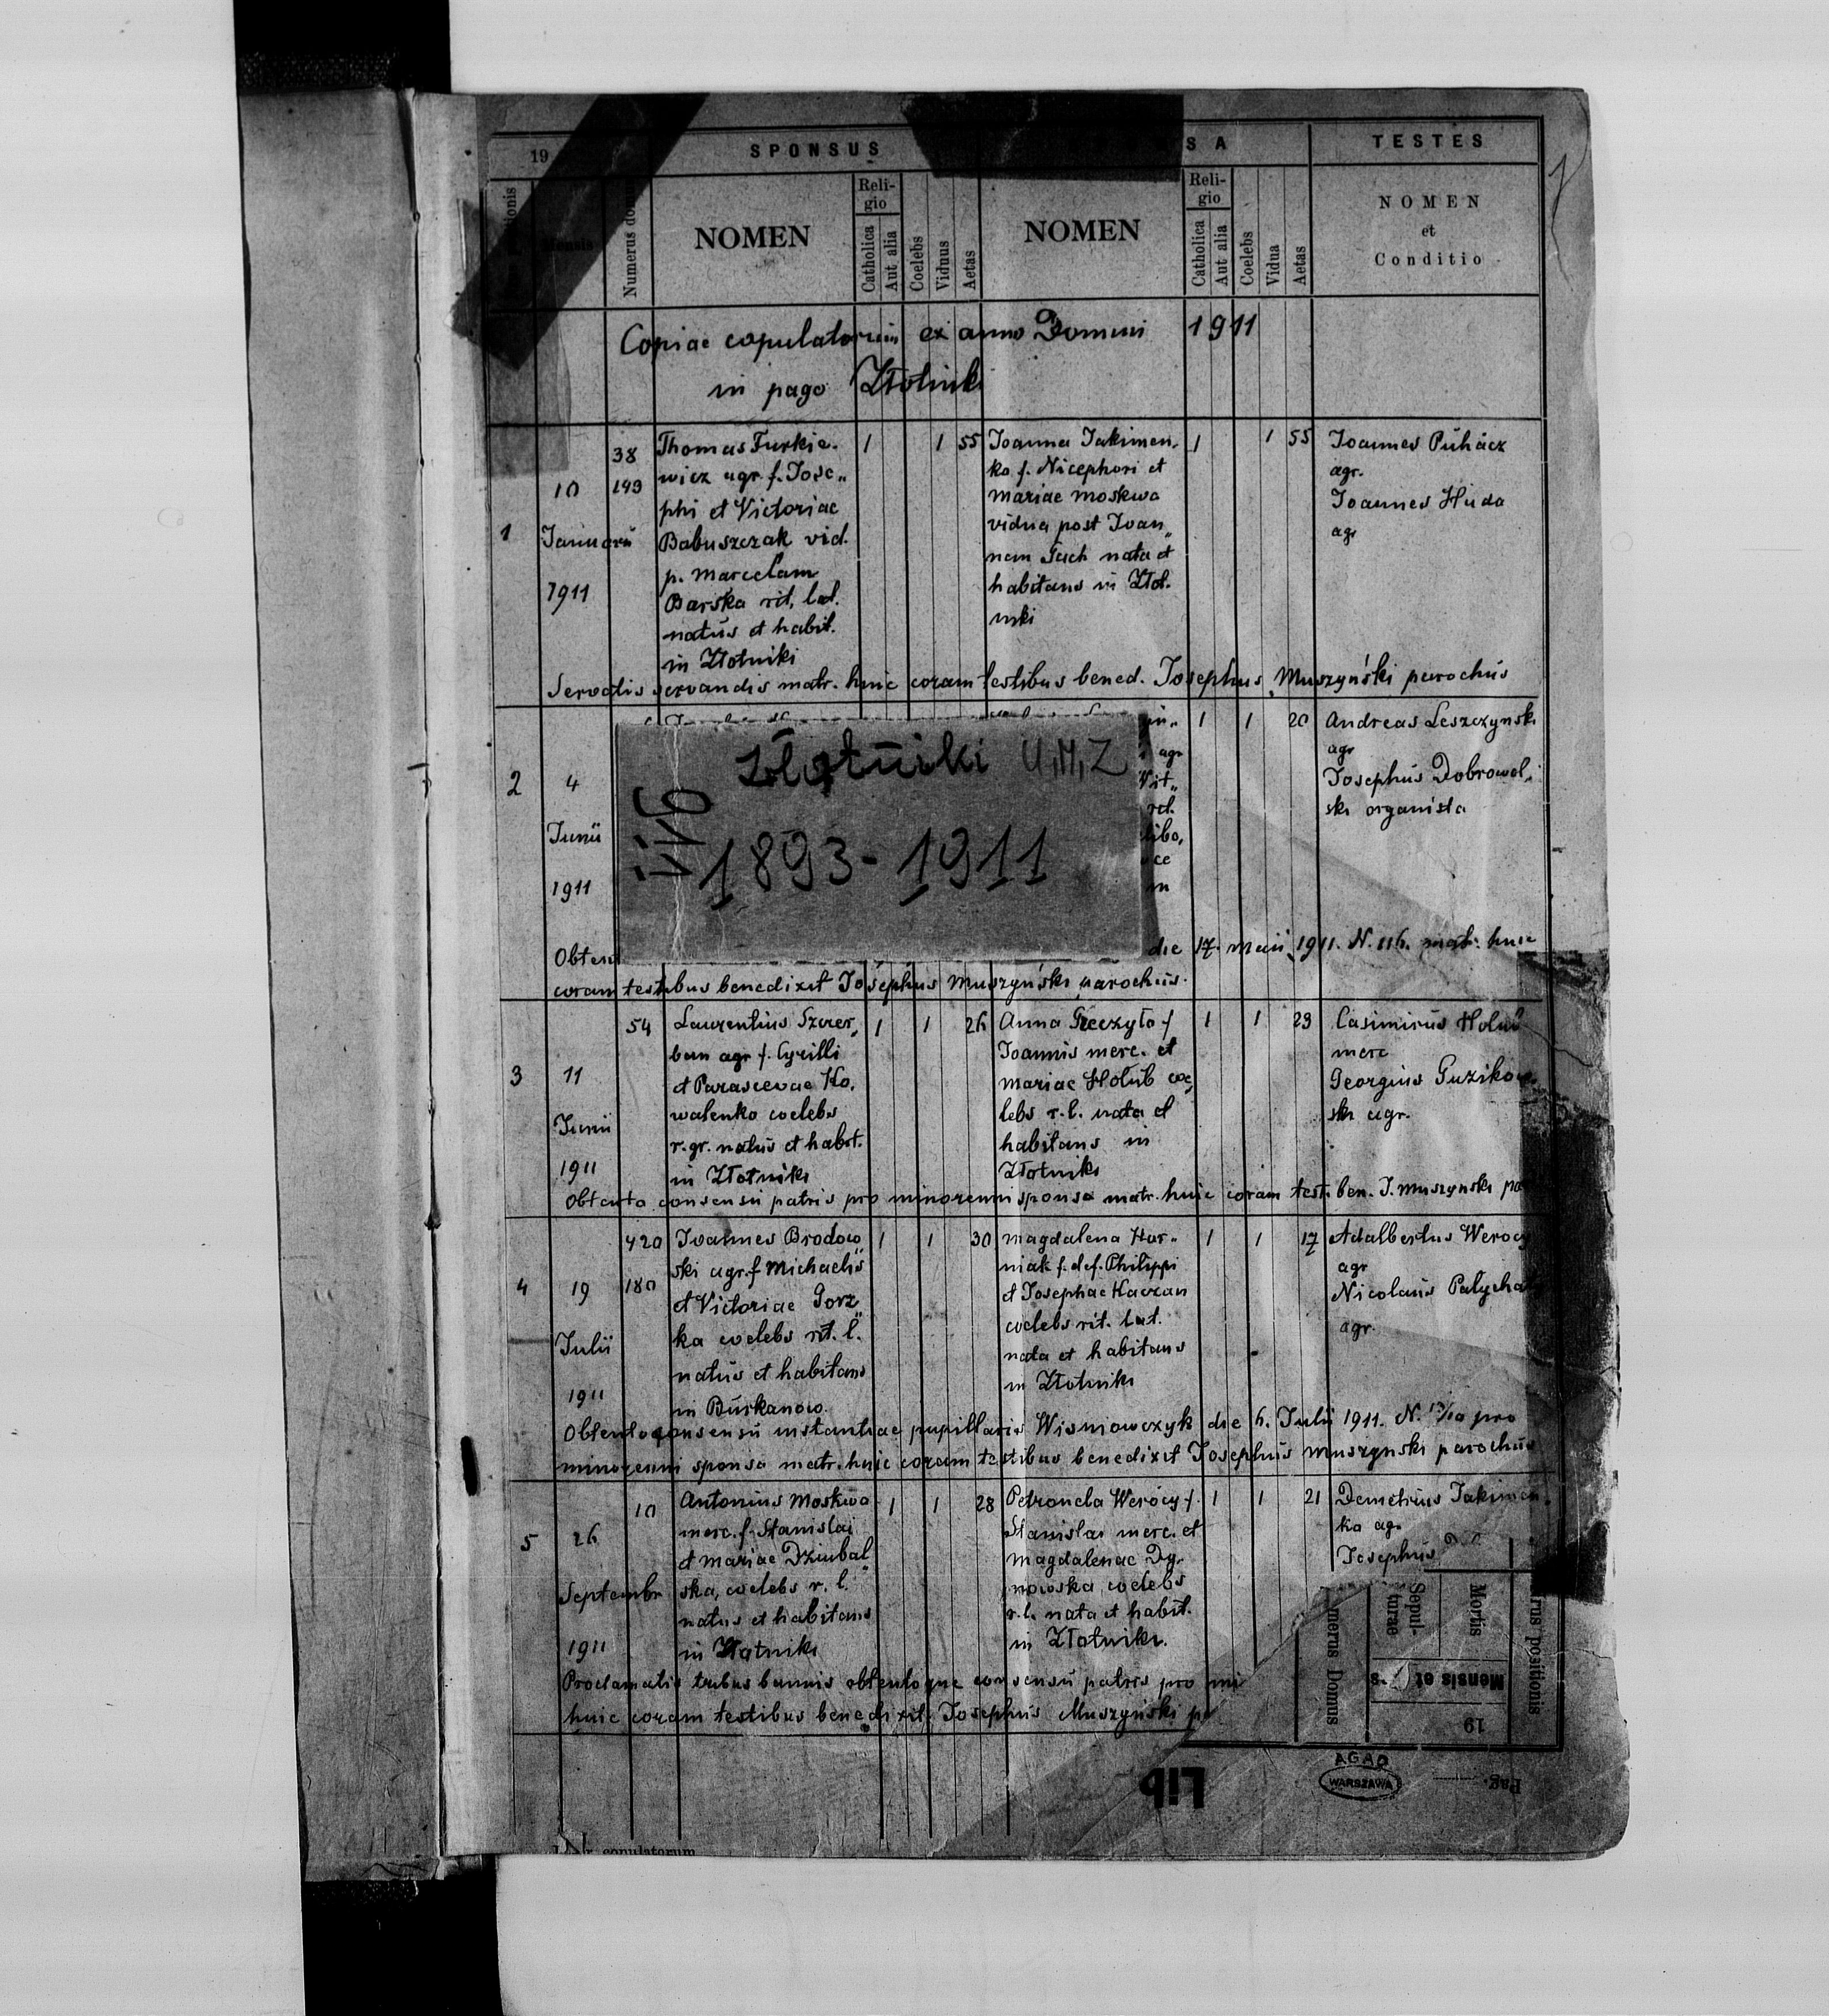 19 SPONSUS S A TESTES
Numerus NOMEN Religio Catholica Aut alia Coelebs Viduus Aetas NOMEN Religio Catholica Aut alia Coelebs Vidua Aetas NOMEN et Conditio
Copiae copulatorum ex anno Domini 1911
in pago Złotniki
1
10
Januarii
1911
38
193
Thomas Furkie-
wicz agr. f. Jose„
phi et Victoriae
Babuszczak vid.
p. Marcelam
Barska rit. lat.
natus et habit.
in Złotniki
1 1 55
Joanna Jakimen-
ko f. Nicephori et
Mariae Moskwa
vidua post Joan„
nem Guch nata et
habitans in Złot.
niki
1 1 55
Joannes Puhacz
agr.
Joannes Huda
agr
Servatis servandis matr. huic coram testibus bened. Josephus Muszyński parochus
2
4
Junii
1911
Złotniki U,M,Z
1893-1911
1 1 20
Andreas Leszczynski
agr
Josephus Dobrowol-
ski organista
die 17. Maii 1911. N. 116. matr. huic
coram testibus benedixit Josephus Muszyński parochus.
3
11
Junii
1911
54
Laurentius Szczer,
ban agr f. Cyrilli
et Parascevae Ko,
walenko coelebs
r. gr. natus et habit.
in Złotniki
1 1 26
Anna Greczyło f
Joannis merc. et
Mariae Holub coe,
lebs r. l. nata et
habitans in
Złotniki
1 1 23
Casimirus Holub
merc
Georgius Guzikow
ski agr.
Obtento consensu patris pro minorenni sponsa matr. huic coram test. ben. J. Muszynski
4
19
Julii
1911
420
180
Joannes Brodow„
ski agr. f Michaelis
et Victoriae Gorz„
ka coelebs rit. l.
natus et habitans
in Burkanow.
1 1 30
Magdalena Har-
niak f. def. Philippi
et Josephae Kaczan
coelebs rit. lat.
nata et habitans
in Złotniki
1 1 17
Adalbertus Werocy
agr
Nicolaus
agr.
Obtento consensu instantiae pupillaris Wisniowczyk die 6. Julii 1911. N. pro
minorenni sponsa matr. huic coram testibus benedixit Josephus Muszynski parochus
5
26
Septembr
1911
10
Antonius Moskwa
merc. f. Stanislai
et Mariae Dziubal„
ska, coelebs r. l.
natus et habitans
in Złotniki
1 1 28
Petronela Werocy f.
Stanislai merc. et
Magdalenae Dy-
nowska coelebs
r. l. nata et habit.
in Złotniki.
1 1 21
Demetrius Jakimen-
ko agr
Josephus
Proclamatis tribus bannis obtentoque consensu patris pro
huic coram testibus benedixit Josephus Muszyński
Mortis
Sepulturae
Mensis et
19
Domus
positionis
Pag.
Lib
AGAD
WARSZAWA
copulatorum